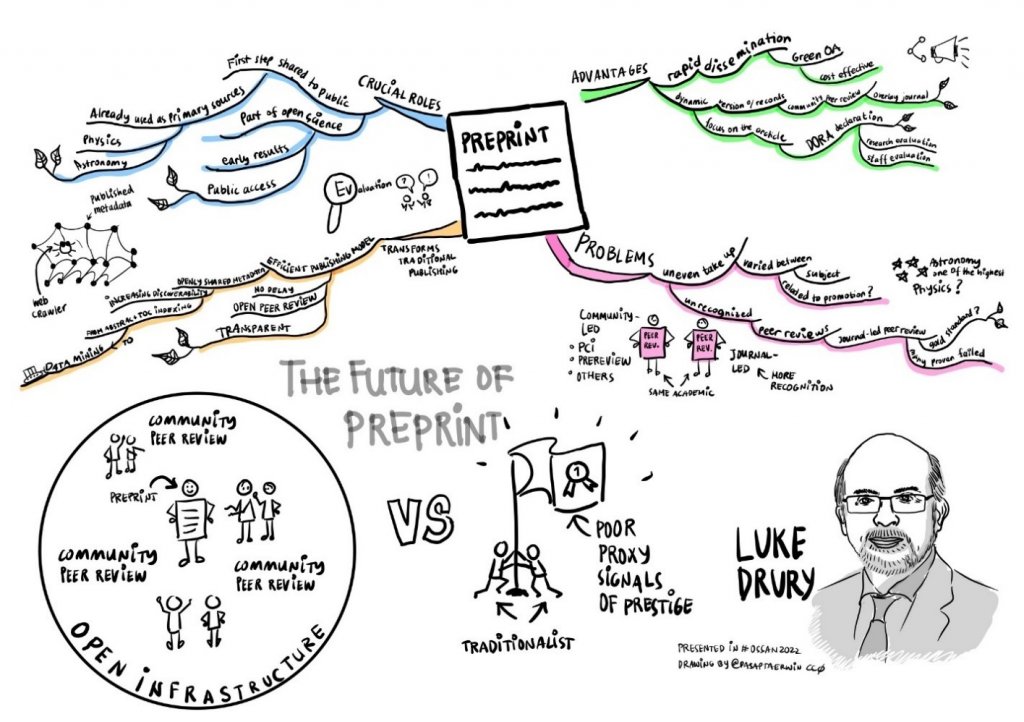 PREPRINT
CRUCIAL ROLES
First step shared to public
Already used as primary sources
Physics
Astronomy
Part of open science
early results
Public access
ADVANTAGES
rapid dissemination
Green OA
cost effective
dynamic
version of records
community peer review
overlay journal
focus on the article
DORA declaration
research evaluation
staff evaluation
Evaluation
? !
TRANSFORMS
TRADITIONAL
PUBLISHING
EFFICIENT PUBLISHING MODEL
OPENLY SHARED METADATA
INCREASING DISCOVERABILITY
FROM ABSTRACT & TOC INDEXING
TO
DATA MINING
NO DELAY
OPEN PEER REVIEW
TRANSPARENT
Published
metadata
web
crawler
PROBLEMS
uneven take up
varied between
subject
related to promotion?
Astronomy
one of the highest
Physics?
unrecognized
peer reviews
Journal-led peer review
gold standard?
many proven failed
COMMUNITY-
LED
PCI
PREREVIEW
OTHERS
PEER
REV.
PEER
REV.
SAME ACADEMIC
JOURNAL-
LED
MORE
RECOGNITION
THE FUTURE OF
PREPRINT
COMMUNITY
PEER REVIEW
PREPRINT
COMMUNITY
PEER REVIEW
COMMUNITY
PEER REVIEW
OPEN INFRASTRUCTURE
VS
1
POOR
PROXY
SIGNALS
OF PRESTIGE
TRADITIONALIST
LUKE
DRURY
PRESENTED IN #OSSAN2022
DRAWING BY @DASAPTAERWIN CC0